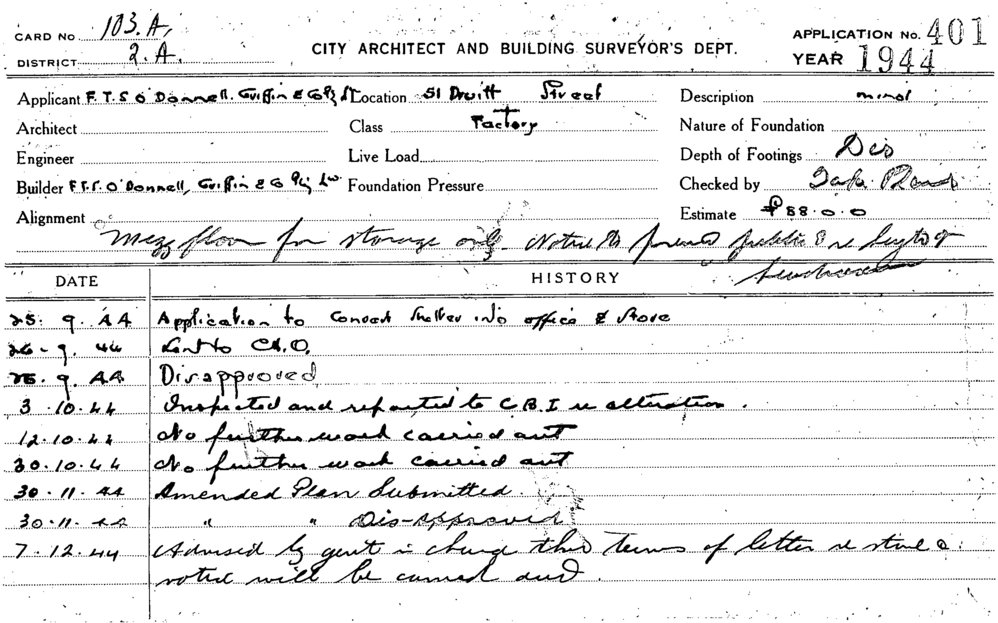 CARD No 103.A.
DISTRICT 2.A.
CITY ARCHITECT AND BUILDING SURVEYOR'S DEPT.
APPLICATION No. 401
YEAR 1944
Applicant F.T.S O'Donnell. Griffin & Co Pty Lt Location 51 Druitt Street Description minor
Architect Class Factory Nature of Foundation
Engineer Live Load Depth of Footings Des
Builder F.T.S. O'Donnell, Griffin & Co Pty Foundation Pressure Checked by
Alignment Estimate £88.0.0
Mezz floor for storage only. Notice to public re
DATE HISTORY
25. 9. 44 Application to Convert Shelter into office & Store
26-9. 44 Sent to C.H.O.
9. 44 Disapproved
3.10.44 Inspected and reported to C.B.I re alteration.
12.10.44 No further work carried out
30.10.44 No further work carried out
30.11.44 Amended Plan Submitted.
30.11.44 " " Dis-approved
7.12.44 Advised by gent in charge that terms of letter re store
noted will be carried out.